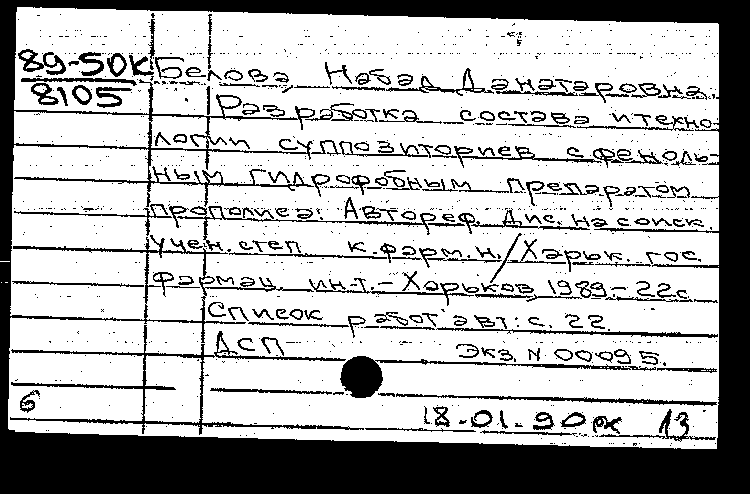 89-50К Белова Набад Данатаровна.
8105
Разработка состава и техно-
логии суппозиториев с феноль-
ным гидрофобным препаратом
прополиса: Автореф. дис. на соиск.
учен. степ. к.фарм.н. / Харьк. гос.
фармац. ин-т. - Харьков, 1989. - 22с
Список работ авт: с. 22.
ДСП Экз. N 00095.
6
18-01-90 рк 13